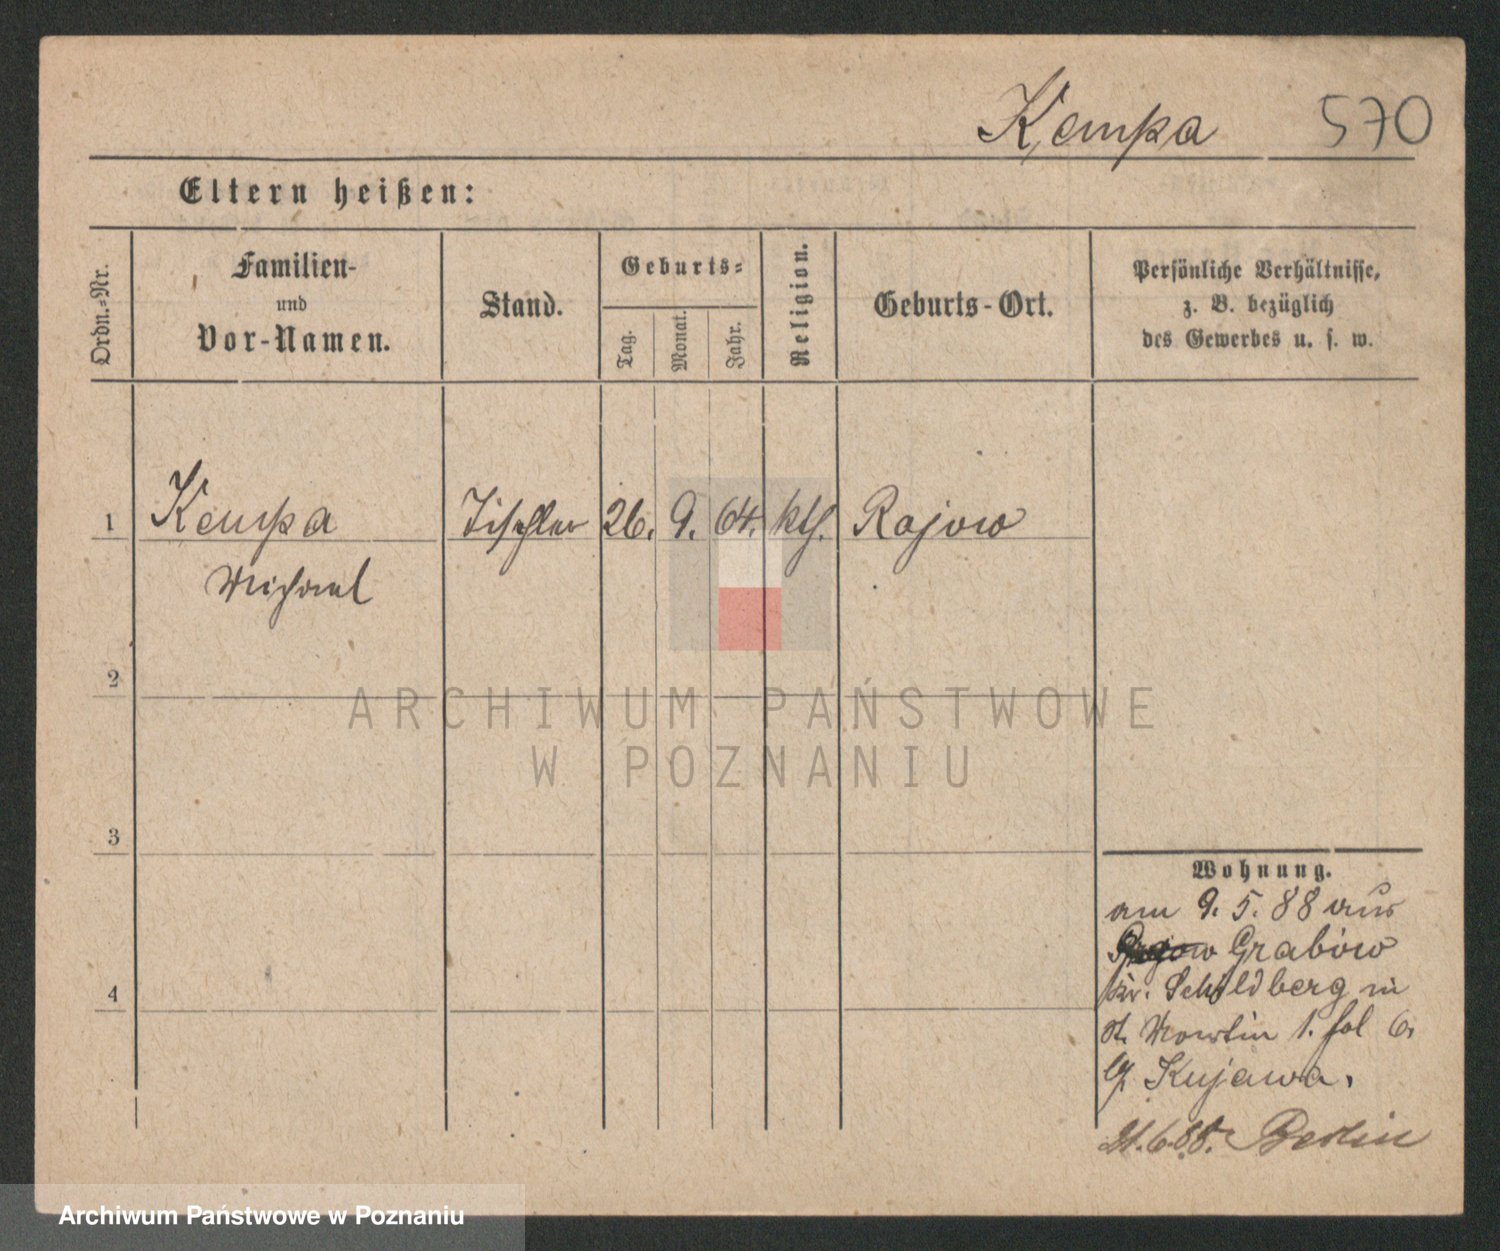 Kempa 570
Eltern heißen:
Ordn.-Nr.
Familien-
und
Vor-Namen.
Stand.
Geburts-
Tag.
Monat.
Jahr.
Religion.
Geburts-Ort.
Persönliche Verhältnisse,
z. B. bezüglich
des Gewerbes u. s. w.
1 Kempa Tischler 26. 9. 64. kth. Rajow
Michael
2
ARCHIWUM PAŃSTWOWE
W POZNANIU
3
4
Wohnung.
am 9. 5. 88 aus
Grabow
Kr. Schildberg in
St. Martin 1. fol 6.
Kujawa.
21.6.88. Berlin
Archiwum Państwowe w Poznaniu